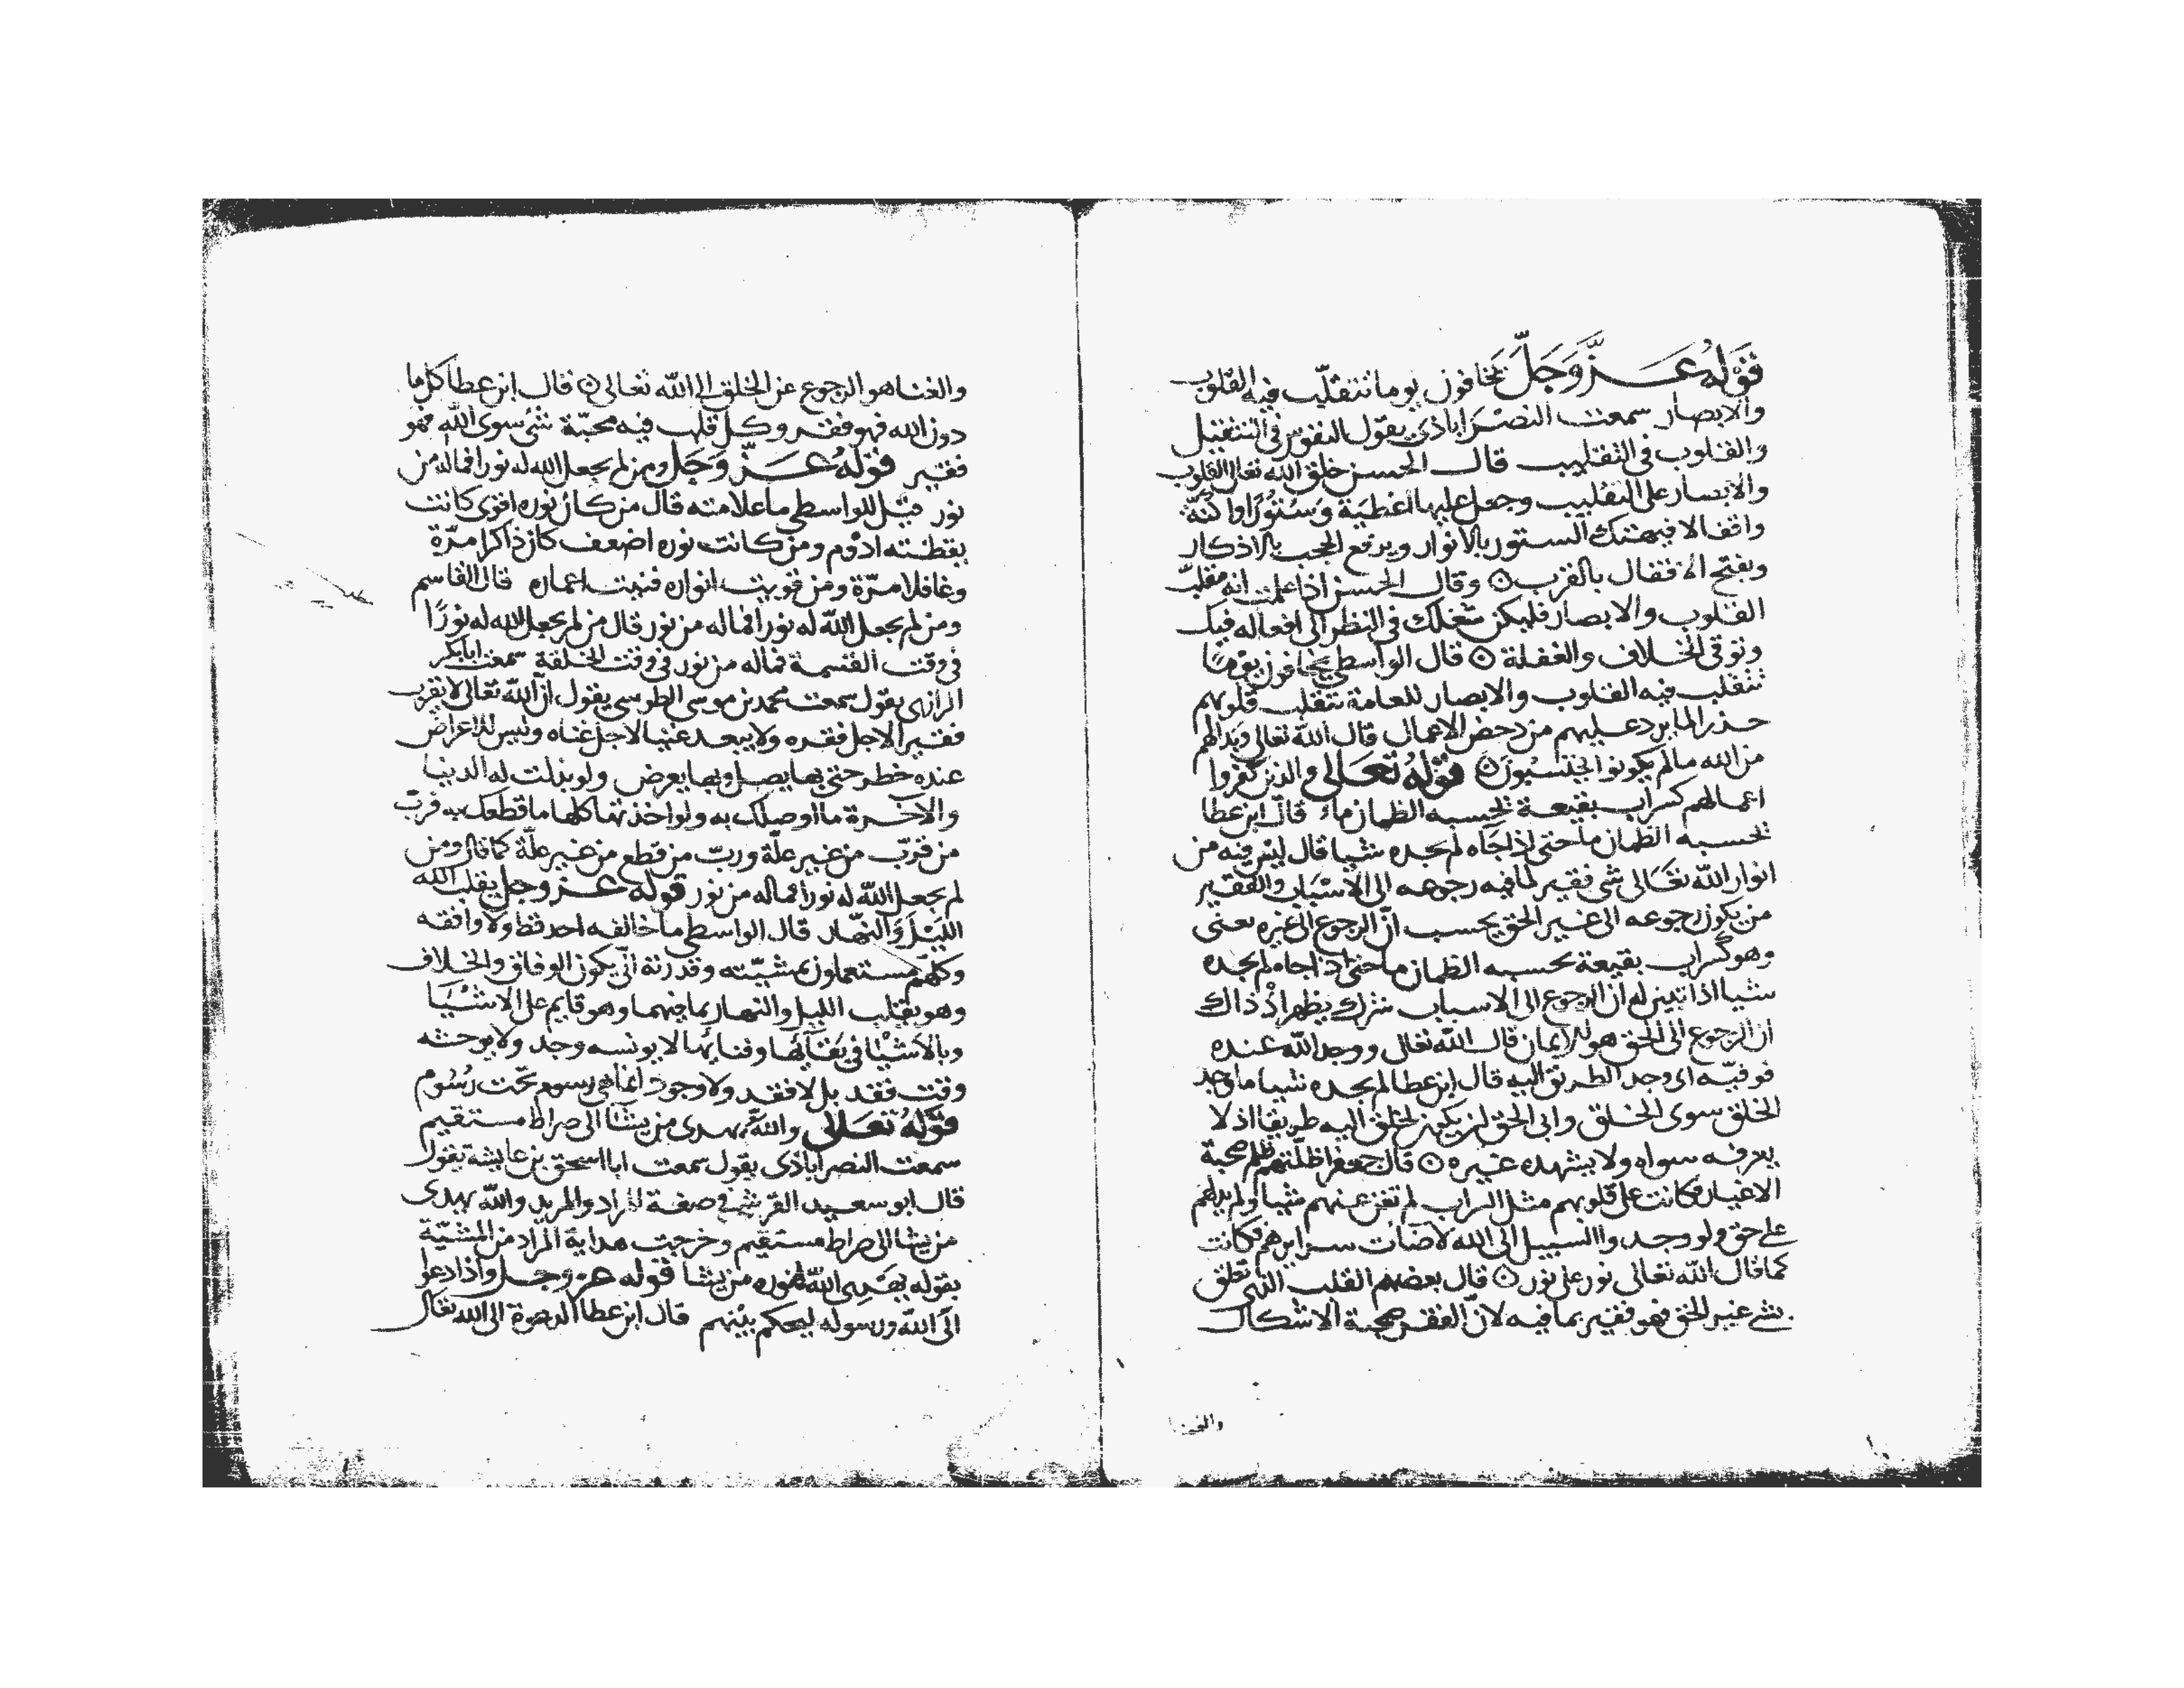 قَوْلُهُ عَزَّ وَجَلَّ يَخافون يوما تتقلّب فيه القلوب
والابصار سمعت النصراباذى يقول النفوس فى التنقيل
والقلوب فى التقليب قال الحسن خلق الله تعالى القلوب
والابصار على التقليب وجعل عليها اغطية وَسُتُورًا واكنّة
واقفالا فيهتك الستور بالانوار ويرفع الحجب بالاذكار
ويفتح الاقفال بالقرب وقال الحسن اذا علمت انه مقلب
القلوب والابصار فليكن شغلك فى النظر الى افعاله فيك
وتوقى الخلاف والغفلة قال الواسطى يخافون يومًا
تتقلب فيه القلوب والابصار للعامة تتقلب قلوبهم
حذرا لما يرد عليهم من دحض الاعمال قال الله تعالى وبدا لهم
من الله ما لم يكونوا يحتسبون قَوْلُهُ تَعَالى والذين كفروا
اعمالهم كسراب بقيعة يحسبه الظمان ماء قال ابن عطا
يحسبه الظمان ما حتى اذا جاه لم يجده شيا قال ليس فيه من
انوار الله تعالى شى فقير لما فيه رجوعه الى الاسْبَاب والفقير
من يكون رجوعه الى غير الحق يحسب انّ الرجوع الى غيره يعنى
وهو كسراب بقيعة يحسبه الظمان ما حتى اذا جاه لم يجده
شيا اذا تبين له ان الرجوع الى الاسباب شرك يظهر اذ ذاك
ان الرجوع الى الحق هو الايمان قال الله تعالى ووجد الله عنده
فوفيّه اى وجد الطريق اليه قال ابن عطا لم يجده شيا ما وجد
الخلق سوى الخلق وابى الحق ان يكون لخلق اليه طريقا اذ لا
يعرفه سواه ولا يشهده غيره قال جعفر اظلّتهم ظلم صحبة
الاغيار فكانت على قلوبهم مثل السراب لم تغن عنهم شيا ولم يدلهم
على حق ولو وجدوا السبيل الى الله لاضات سرايرهم فكانت
كما قال الله تعالى نور على نور قال بعضهم القلب الذى تعلق
بشى غير الحق فهو فقير بما فيه لانّ الفقر صحبة الاشكال
والغنا
والغنا هو الرجوع عن الخلق الى الله تعالى قال ابن عطا كل ما
دون الله فهو فقر وكل قلب فيه محبّة شئ سوى الله فهو
فقير قَوْلُهُ عَزَّ وَجَل ومن لم يجعل الله له نورا فما له من
نور قيل للواسطى ما علامته قال من كان نوره اقوى كانت
يقظته ادوم ومن كانت نوره اضعف كان ذاكرا مرّة
وغافلا مرّة ومن قويت انواره فنيت اعماره قال القاسم
ومن لم يجعل الله له نورا فما له من نور قال من لم يجعل الله له نورًا
فى وقت القسمة فما له من نور فى وقت الخلقة سمعت ابا بكر
الرازى يقول سمعت محمد بن موسى الطرسى يقول انّ الله تعالى لا يقرب
فقيرا لاجل فقره ولا يبعد غنيا لاجل غناه وليس للاعراض
عنده خطر حتى بها يصل وبها يعرض ولو بذلت له الدنيا
والاخرة ما اوصلك به ولو اخذتها كلها ما قطعك به قرّب
من قرّب من غير علّة وربّ من قطع من غير علّة كما قال ومن
لم يجعل الله له نورا فما له من نور قوله عز وجل يقلب الله
الليْلَ وَالنهار قال الواسطى ما خالفه احد قط ولا وافقه
وكلهم مستعملون بمشيّته وقدرته انّى يكون الوفاق والخلاف
وهو يقلب الليل والنهار بما فيهما وهو قايم على الاشْيَا
وبالاشْيا فى بَقَآئها وفنائها لا يونسه وجد ولا يوحشه
وقت فقد بل لا فقد ولا وجود انما هى رسوم تحت رُسُوم
قَوْلُهُ تَعَالى واللهُ يهدى من يشا الى صراط مستقيم
سمعت النصراباذى يقول سمعت ابا اسحق بن عايشة يقول
قال ابو سعيد القرشى فى صفة المراد والمريد والله يهدى
من يشا الى صراط مستقيم وخرجت هداية المراد من المشيّة
بقوله يهدى الله لنوره من يشا قوله عز وجل واذا دعوا
الى الله ورسوله ليحكم بينهم قال ابن عطا الدعوة الى الله تعالى